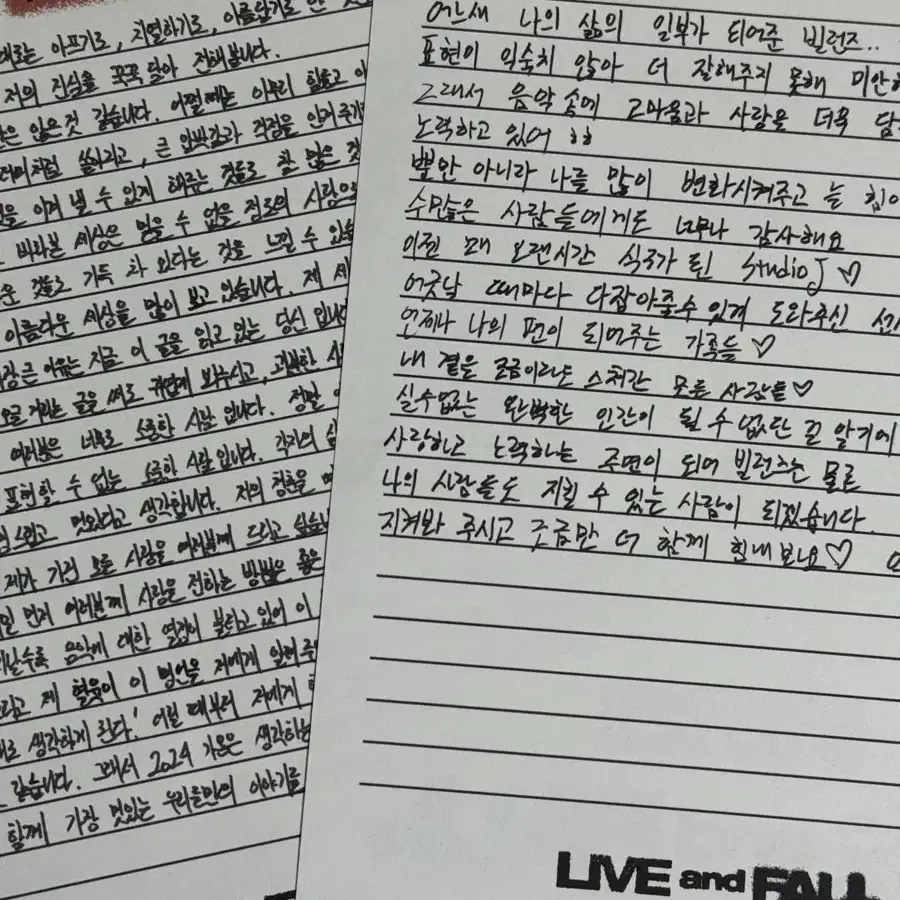 대로는 아프기로, 치열하기로, 아름답기로 한
저의 진심을 꾹꾹 담아 전해봅니다.
않은 것 같습니다. 어쩔 때는 아무리 힘들고
쓰러지고, 큰 압박감과 걱정을 안겨주기
이겨 낼 수 있게 해주는 것들로 참 많은
바라본 세상은 믿을 수 없을 정도의 사랑으로
것들로 가득 차 있다는 것을 느낄 수 있었
아름다운 세상을 많이 보고 있습니다. 제
큰 이유는 지금 이 글을 읽고 있는 당신 입니다
글을 써도 귀엽게 봐주시고, 괴분한
여러분은 너무도 소중한 사람 입니다. 정말
표현할 수 없는 소중한 사람 입니다. 각자의
멋있다고 생각합니다. 저의 청춘을
제가 가진 모든 사랑을 여러분께 드리고 싶습니
먼저 여러분께 사랑을 전하는 방법은 좋은
갈수록 음악에 대한 열정이 불타고 있어 이
제 혈육이 이 명언을 저에게 알려주
생각하게 된다.' 어릴 때부터 저에게
같습니다. 그래서 2024 가온은 생각하는
함께 가장 멋있는 우리들만의 이야기를
어느새 나의 삶의 일부가 되어준 빌런즈..
표현이 익숙치 않아 더 잘해주지 못해 미안하
그래서 음악 속에 고마움과 사랑을 더욱 담
노력하고 있어 ㅎㅎ
뿐만 아니라 나를 많이 변화시켜주고 늘 힘이
수많은 사람들에게도 너무나 감사해요
이젠 꽤 오랜시간 식구가 된 Studio J ♡
어긋날 때마다 다잡아줄수 있게 도와주신
언제나 나의 편이 되어주는 가족들 ♡
내 곁을 조금이라도 스쳐간 모든 사람들 ♡
실수없는 완벽한 인간이 될 수 없단 걸 알기에
사랑하고 노력하는 주연이 되어 빌런즈는 물론
나의 사람들도 지킬 수 있는 사람이 되겠습니다.
지켜봐 주시고 조금만 더 함께 힘내보나요♡
LIVE and FALL